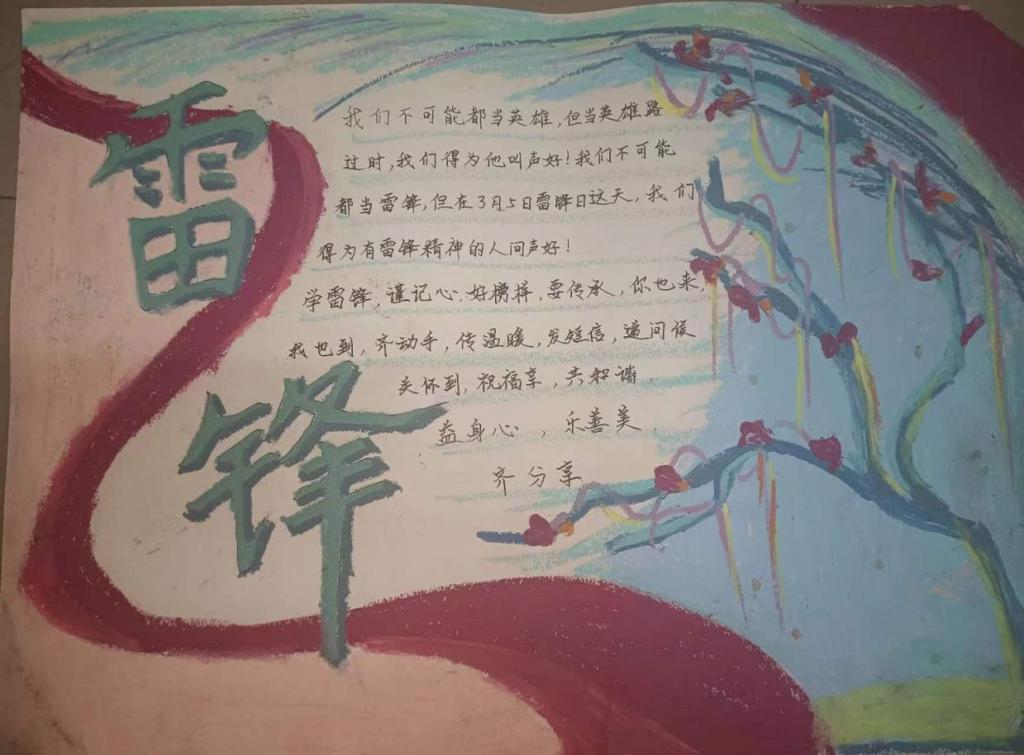 雷锋
我们不可能都当英雄,但当英雄路
过时,我们得为他叫声好!我们不可能
都当雷锋,但在3月5日雷锋日这天,我们
得为有雷锋精神的人问声好!
学雷锋,谨记心,好榜样,要传承,你也来,
我也到,齐动手,传温暖,发短信,递问候
关怀到,祝福享,共和谐.
益身心,乐善美.
齐分享